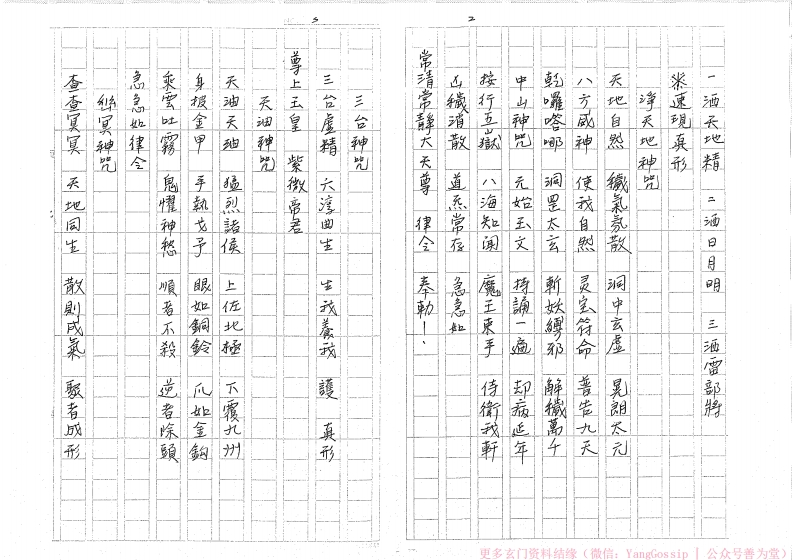 2
一洒天地精 二洒日月明 三洒雷部將
柒速現真形
淨天地神咒
天地自然 穢氣氛散 洞中玄虛 晃朗太元
八方威神 使我自然 灵宝符命 普告九天
乾囉嗒哪 洞罡太玄 斬妖縛邪 解穢萬千
中山神咒 元始玉文 持誦一遍 却病延年
按行五嶽 八海知聞 魔王束手 侍衛我軒
凶穢消散 道炁常存 急急如
常清常靜大天尊 律令 奉勅！
3
三台神咒
三台虛精 六淳曲生 生我養我 護 真形
尊上玉皇 紫微帝君
天油神咒
天油天油 猛烈諸侯 上佐北極 下覆九州
身披金甲 手執戈矛 眼如銅鈴 爪如金鈎
乘雲吐霧 鬼懼神愁 順者不殺 逆者除頭
急急如律令
冥神咒
查查冥冥 天地同生 散則成氣 聚者成形
更多玄门资料结缘（微信：YangGossip | 公众号善为堂）